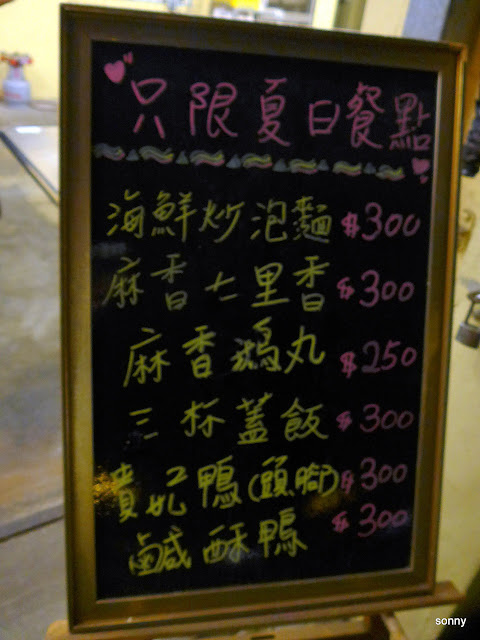 只限夏日餐點
海鮮炒泡麵 $300
麻香七里香 $300
麻香鴨丸 $250
三杯蓋飯 $300
貴妃鴨(頭腳) $300
鹹酥鴨 $300
sonny